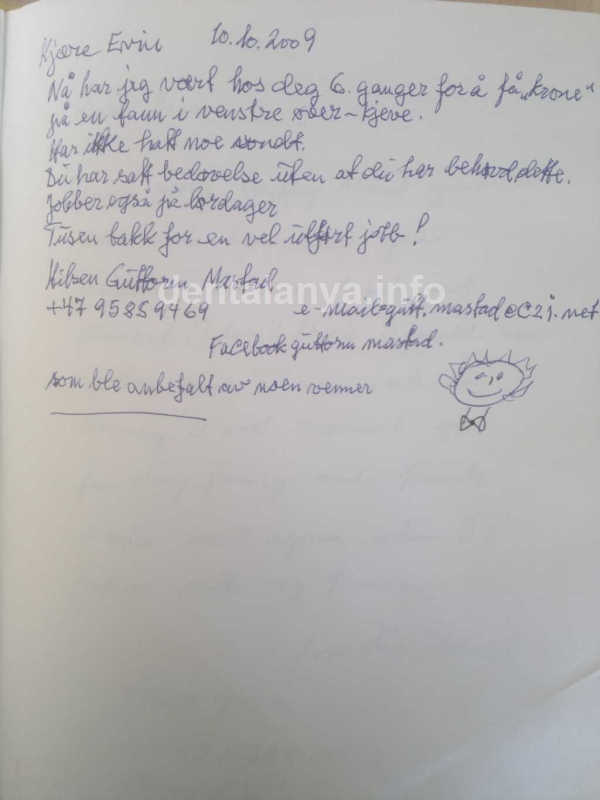 Kjære Ervin 10.10.2009
Nå har jeg vært hos deg 6. ganger for å få „krone"
på en tann i venstre over-kjeve.
Har ikke hatt noe vondt.
Du har satt bedøvelse uten at du har behøvd dette.
Jobber også på lørdager
Tusen takk for en vel utført jobb!
Hilsen Guttorm Mastad
dentalanya.info
+47 95859469 e-mail=gutt.mastad@c2i.net
Facebook guttorm mastad.
som ble anbefalt av noen venner